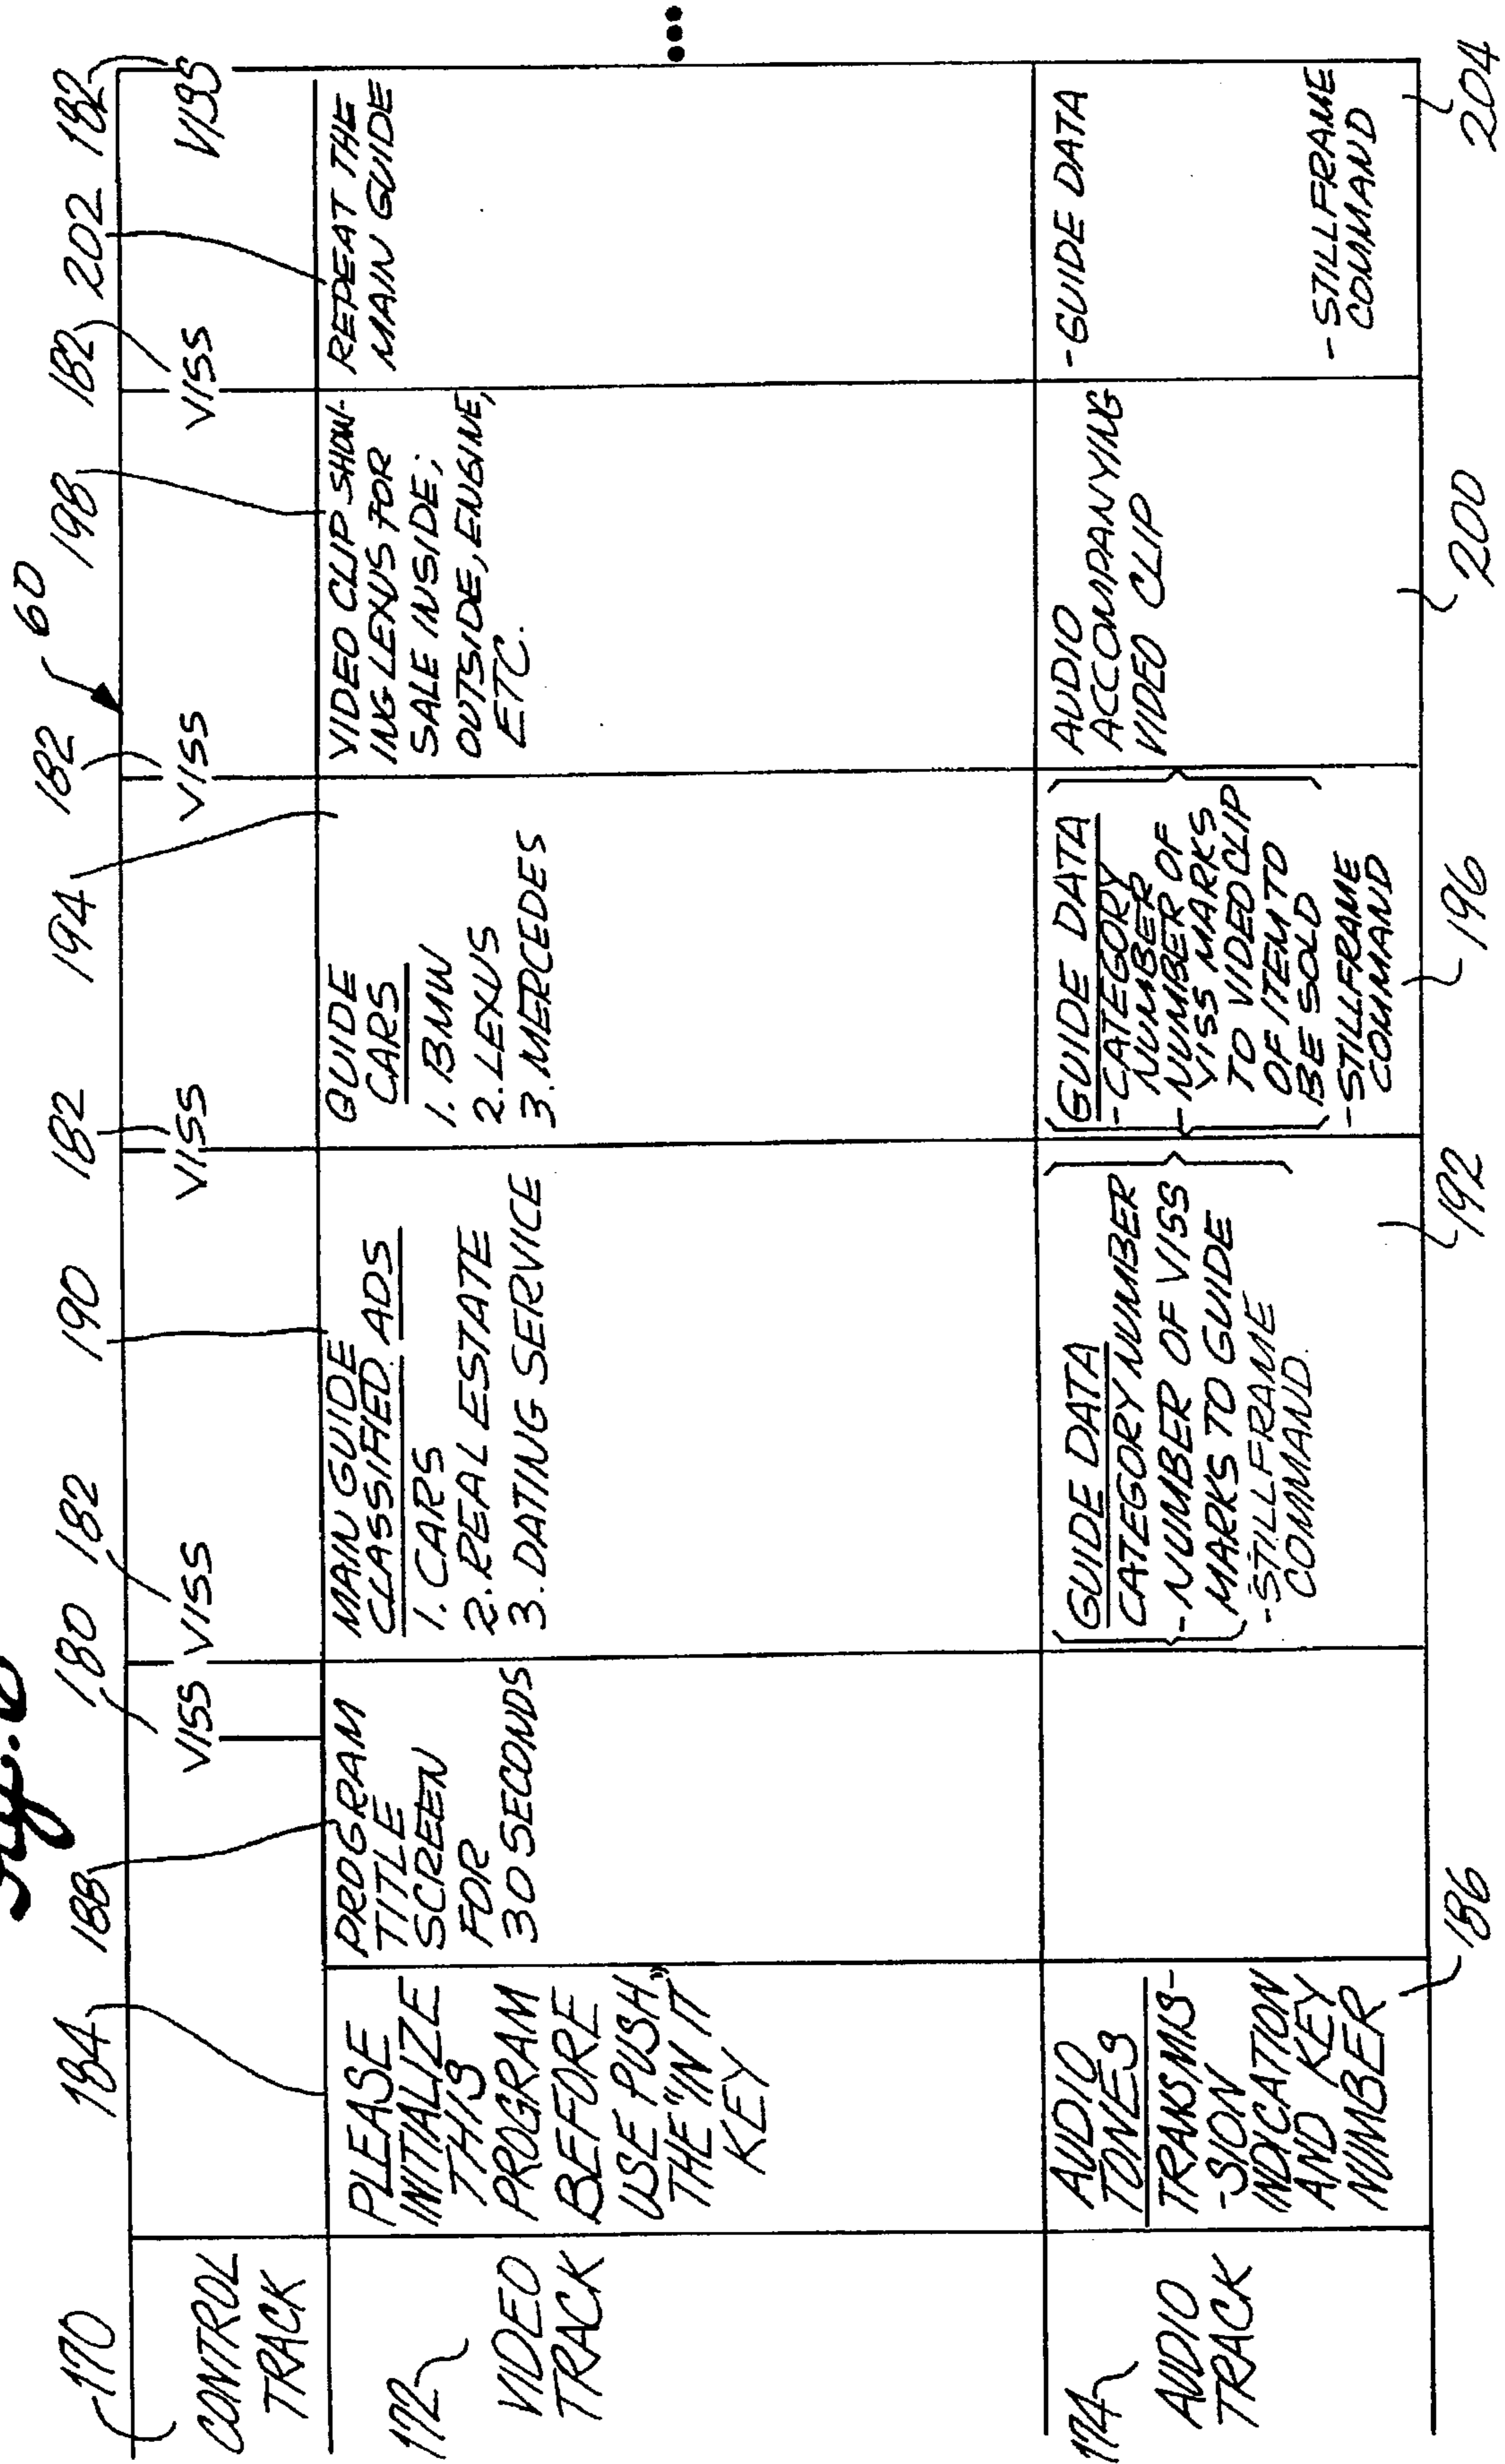 60
170
184
188
180
182
190
182
194
182
198
182
202
182
CONTROL
TRACK
VISS
VISS
VISS
VISS
VISS
VISS
172
VIDEO
TRACK
PLEASE
INITIALIZE
THIS
PROGRAM
BEFORE
USE PUSH
THE "IN IT"
KEY
PROGRAM
TITLE
SCREEN
FOR
30 SECONDS
MAIN GUIDE
CLASSIFIED ADS
1. CARS
2. REAL ESTATE
3. DATING SERVICE
GUIDE
CARS
1. BMW
2. LEXUS
3. MERCEDES
VIDEO CLIP SHOW-
ING LEXUS FOR
SALE INSIDE;
OUTSIDE, ENGINE,
ETC.
REPEAT THE
MAIN GUIDE
...
174
AUDIO
TRACK
AUDIO
TONES
TRANSMIS-
-SION
INDICATION
AND KEY
NUMBER
GUIDE DATA
CATEGORY NUMBER
-NUMBER OF VISS
MARKS TO GUIDE
-STILLFRAME
COMMAND.
GUIDE DATA
-CATEGORY
NUMBER
-NUMBER OF
VISS MARKS
TO VIDEO CLIP
OF ITEM TO
BE SOLD
-STILLFRAME
COMMAND
AUDIO
ACCOMPANYING
VIDEO CLIP
-GUIDE DATA
-STILLFRAME
COMMAND
186
192
196
200
204